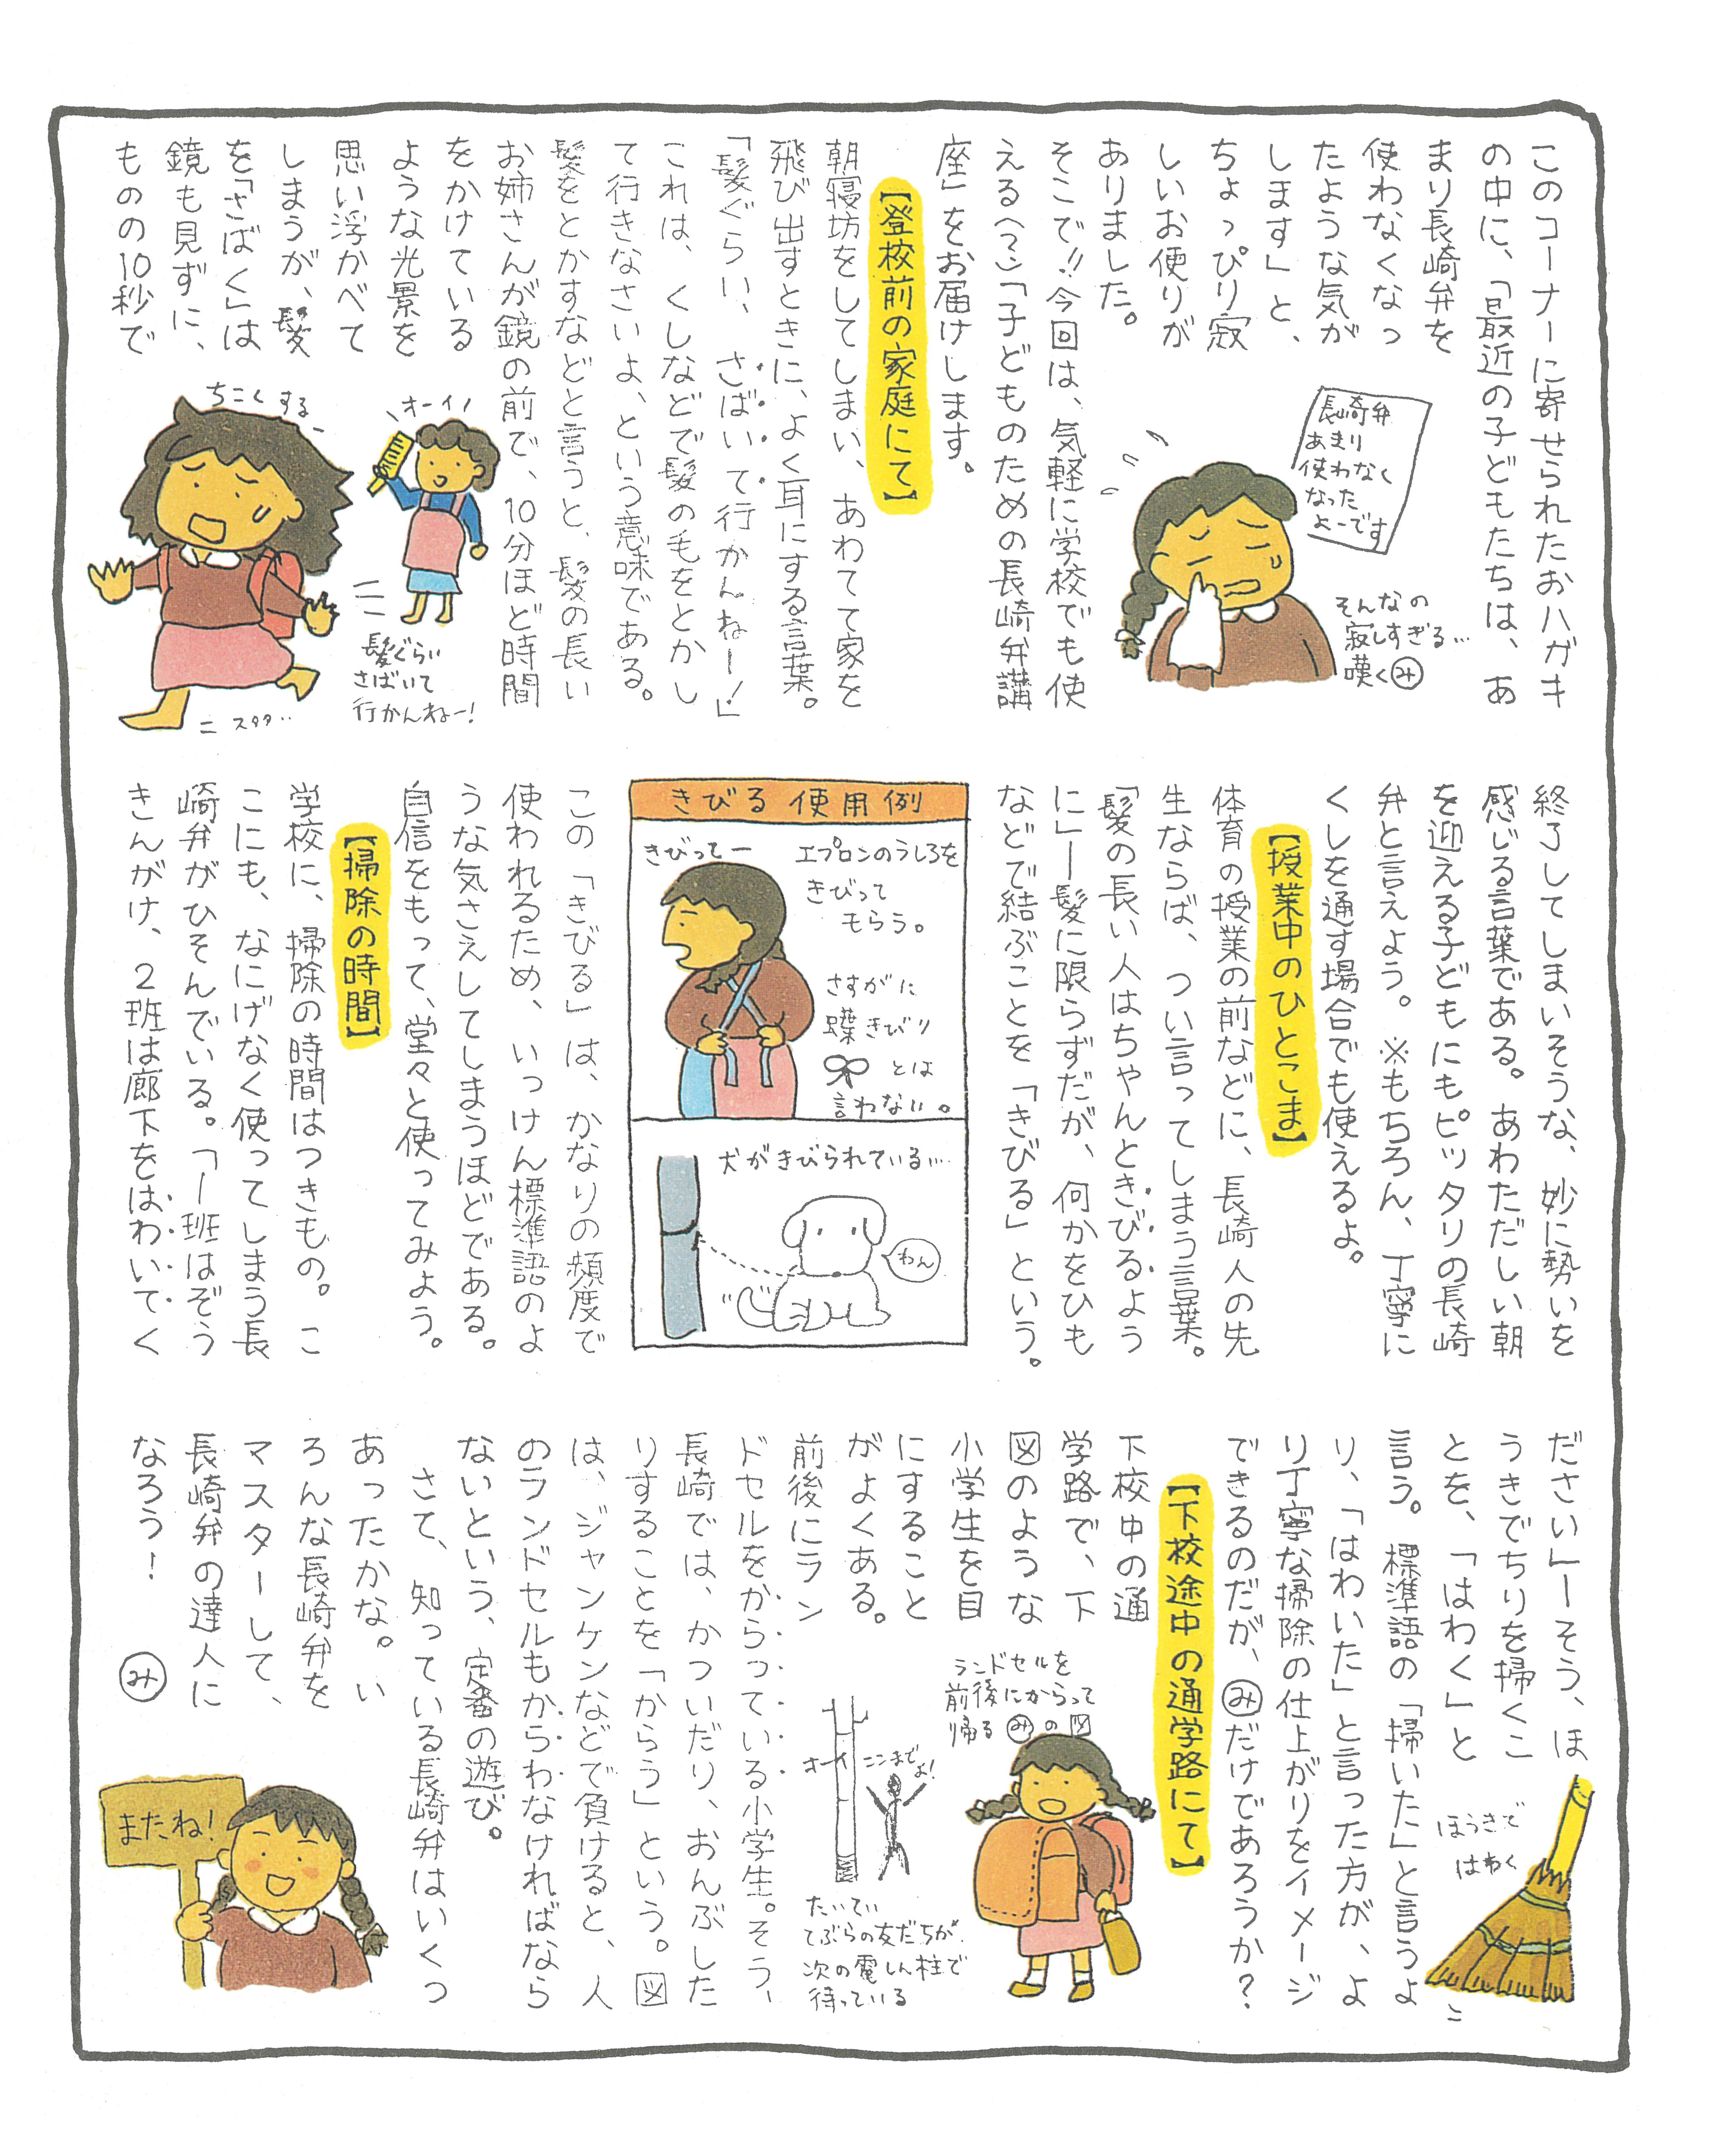 このコーナーに寄せられたおハガキ
の中に、「最近の子どもたちは、あ
まり長崎弁を
使わなくなっ
たような気が
します」と、
ちょっぴり寂
しいお便りが
ありました。
そこで!!今回は、気軽に学校でも使
える(?)「子どものための長崎弁講
座」をお届けします。
長崎弁
あまり
使わなく
なった
よーです
そんなの
寂しすぎる…
嘆くみ
【登校前の家庭にて】
朝寝坊をしてしまい、あわてて家を
飛び出すときに、よく耳にする言葉。
「髪ぐらい、さばいて行かんねー!」
これは、くしなどで髪の毛をとかし
て行きなさいよ、という意味である。
髪をとかすなどと言うと、髪の長い
お姉さんが鏡の前で、10分ほど時間
をかけている
ような光景を
思い浮かべて
しまうが、髪
を「さばく」は
鏡も見ずに、
ものの10秒で
ちこくする
オーイ
髪ぐらい
さばいて
行かんねー!
スタタ..
終了してしまいそうな、妙に勢いを
感じる言葉である。あわただしい朝
を迎える子どもにもピッタリの長崎
弁と言えよう。※もちろん、丁寧に
くしを通す場合でも使えるよ。
【授業中のひとこま】
体育の授業の前などに、長崎人の先
生ならば、つい言ってしまう言葉。
「髪の長い人はちゃんときびるよう
に」ー髪に限らずだが、何かをひも
などで結ぶことを「きびる」という。
きびる使用例
きびってー
エプロンのうしろを
きびって
もらう。
さすがに
蝶きびり
とは
言わない。
犬がきびられている…
わん
この「きびる」は、かなりの頻度で
使われるため、いっけん標準語のよ
うな気さえしてしまうほどである。
自信をもって、堂々と使ってみよう。
【掃除の時間】
学校に、掃除の時間はつきもの。こ
こにも、なにげなく使ってしまう長
崎弁がひそんでいる。「一班はぞう
きんがけ、2班は廊下をはわいてく
ださい」ーそう、ほ
うきでちりを掃くこ
とを、「はわく」と
言う。標準語の「掃いた」と言うよ
り、「はわいた」と言った方が、よ
り丁寧な掃除の仕上がりをイメージ
できるのだが、みだけであろうか?
ほうきで
はわく
【下校途中の通学路にて】
下校中の通
学路で、下
図のような
小学生を目
にすること
がよくある。
前後にラン
ドセルをからっている小学生。そう、
長崎では、かついだり、おんぶした
りすることを「からう」という。図
は、ジャンケンなどで負けると、人
のランドセルもからわなければなら
ないという、定番の遊び。
ランドセルを
前後にからって
帰るみの図
オーイ
ここまで
よ!
たいてい
てぶらの友だちが
次の電しん柱で
待っている
さて、知っている長崎弁はいくつ
あったかな。い
ろんな長崎弁を
マスターして、
長崎弁の達人に
なろう!
み
またね!